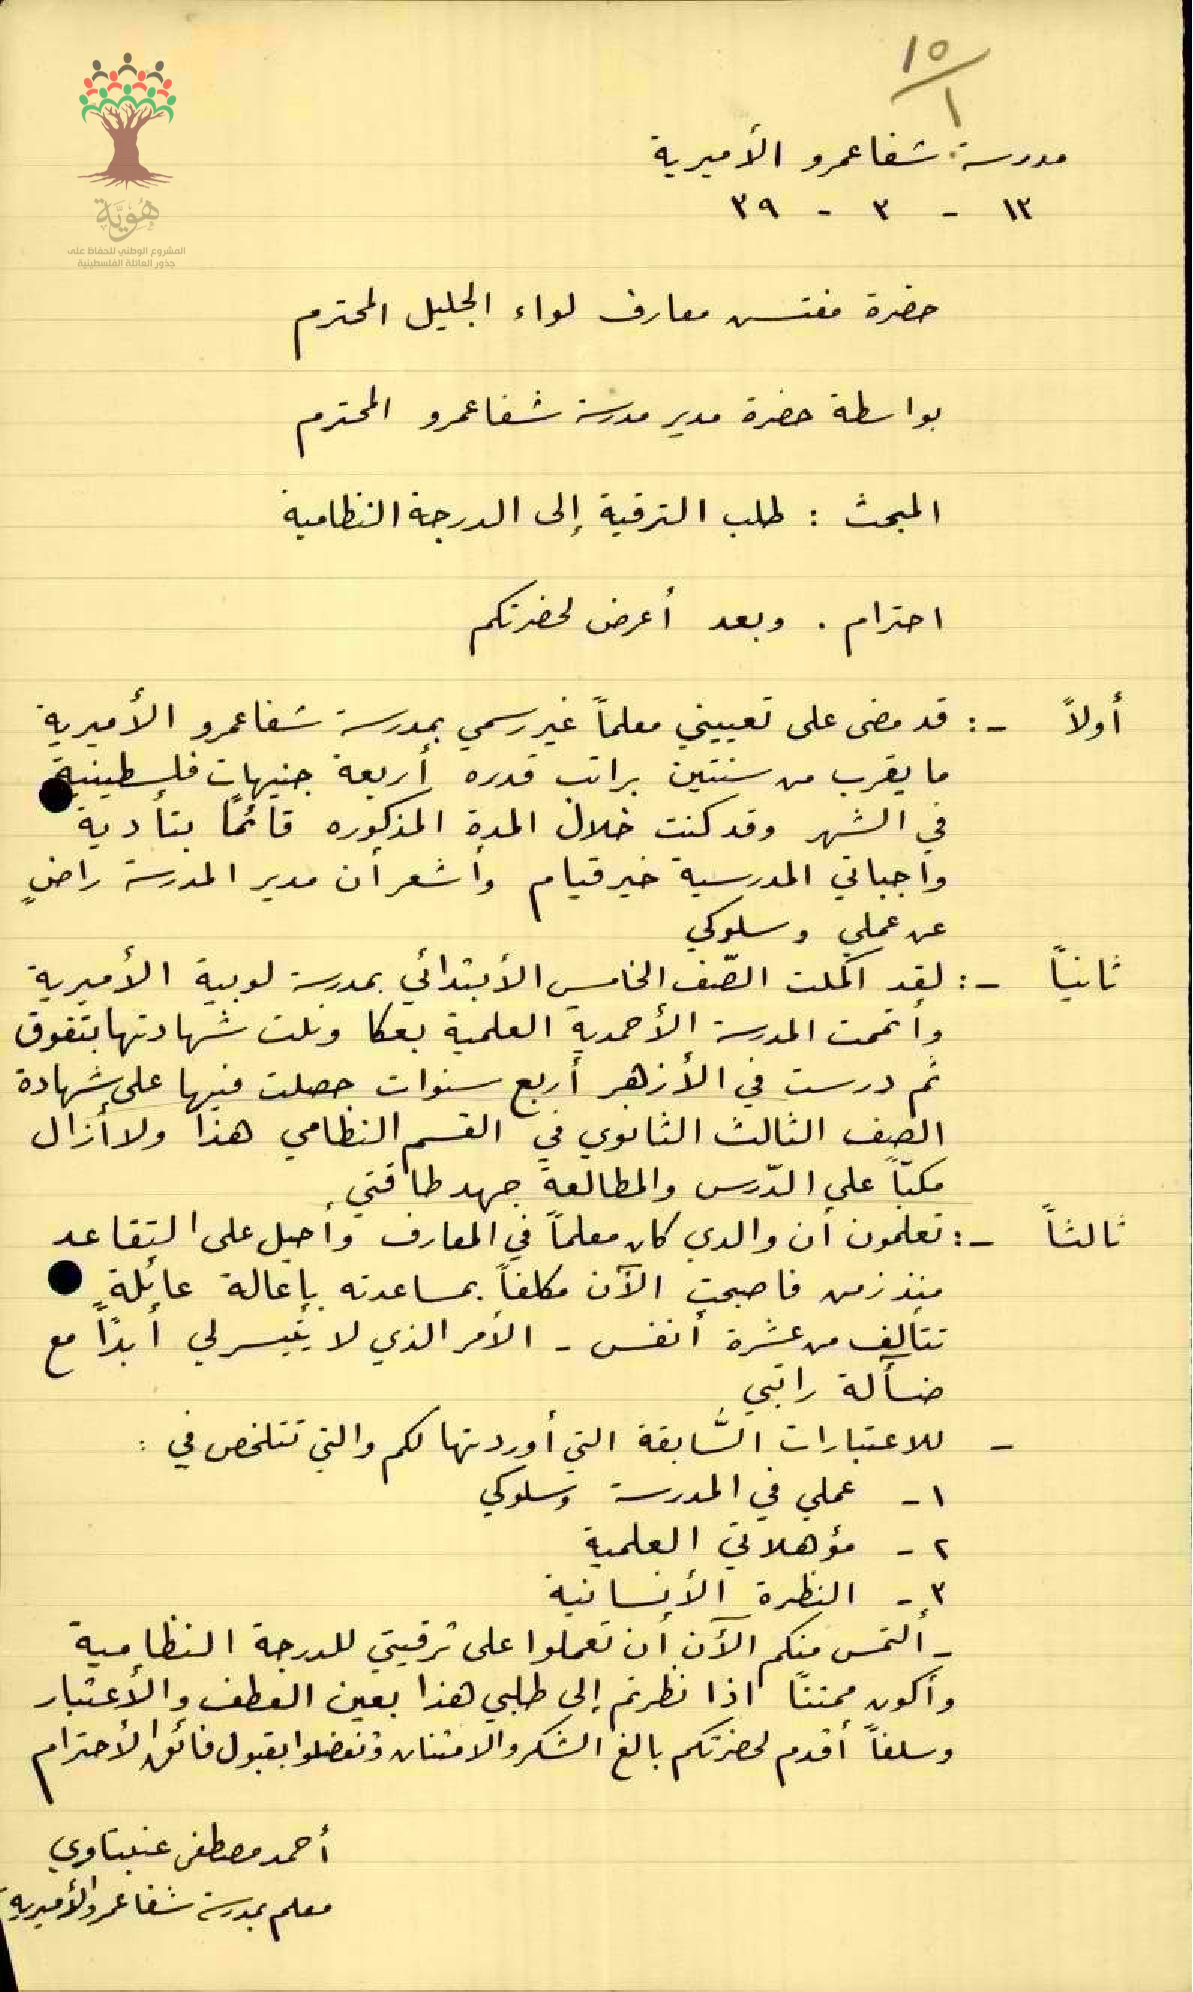 ١٥/١
هُوِيَّة
المشروع الوطني للحفاظ على
جذور العائلة الفلسطينية
مدرسة شفاعمرو الأميرية
١٣ - ٣ - ٣٩
حضرة مفتش معارف لواء الجليل المحترم
بواسطة حضرة مدير مدرسة شفاعمرو المحترم
المبحث : طلب الترقية إلى الدرجة النظامية
احترام . وبعد أعرض لحضرتكم
أولاً -: قد مضى على تعييني معلماً غير رسمي بمدرسة شفاعمرو الأميرية
ما يقرب من سنتين براتب قدره أربعة جنيهات فلسطينية
في الشهر وقد كنت خلال المدة المذكوره قائمًا بتأدية
واجباتي المدرسية خير قيام وأشعر أن مدير المدرسة راضٍ
عن عملي وسلوكي
ثانياً -: لقد اكملت الصّف الخامس الأبتدائي بمدرسة لوبية الأميرية
وأتممت المدرسة الأحمدية العلمية بعكا ونلت شهادتها بتفوق
ثم درست في الأزهر أربع سنوات حصلت فيها على شهادة
الصف الثالث الثانوي في القسم النظامي هذا ولا أزال
مكبّاً على الدّرس والمطالعة جهد طاقتي
ثالثاً -: تعلمون أن والدي كان معلماً في المعارف وأحيل على التقاعد
منذ زمن فاصبحت الآن مكلفاً بمساعدته بإعالة عائلةٍ
تتألف من عشرة أنفس - الأمر الذي لا يتيسر لي أبدًا مع
ضآلة راتبي
- للاعتبارات السَّابقة التي أوردتها لكم والتي تتلخص في :
١- عملي في المدرسة وسلوكي
٢- مؤهلاتي العلمية
٣- النظرة الأنسانية
- ألتمس منكم الآن أن تعملوا على ترقيتي للدرجة النظامية
وأكون ممتنًا اذا نظرتم إلى طلبي هذا بعين العطف والأعتبار
وسلفاً أقدم لحضرتكم بالغ الشكر والامتنان وتفضلوا بقبول فائق الأحترام
أحمد مصطفى عنبتاوي
معلم بمدرسة شفاعمرو الأميرية